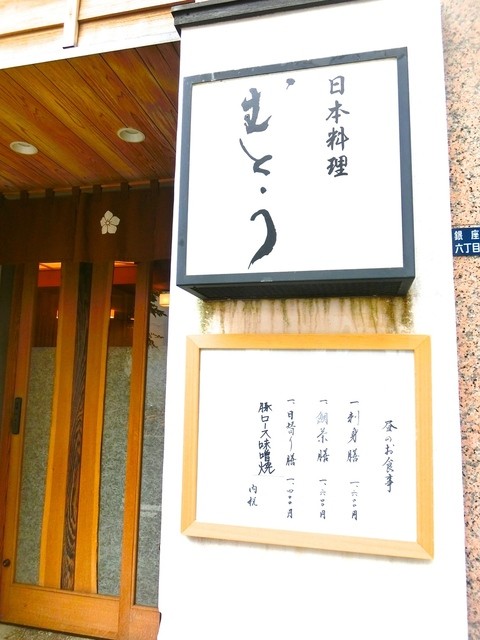 日本料理
むとう
昼のお食事
一、刺身膳 一、六〇〇円
一、鯛茶膳 一、六〇〇円
一、日替り膳 一、四〇〇円
豚ロース味噌焼
内税
銀座
六丁目